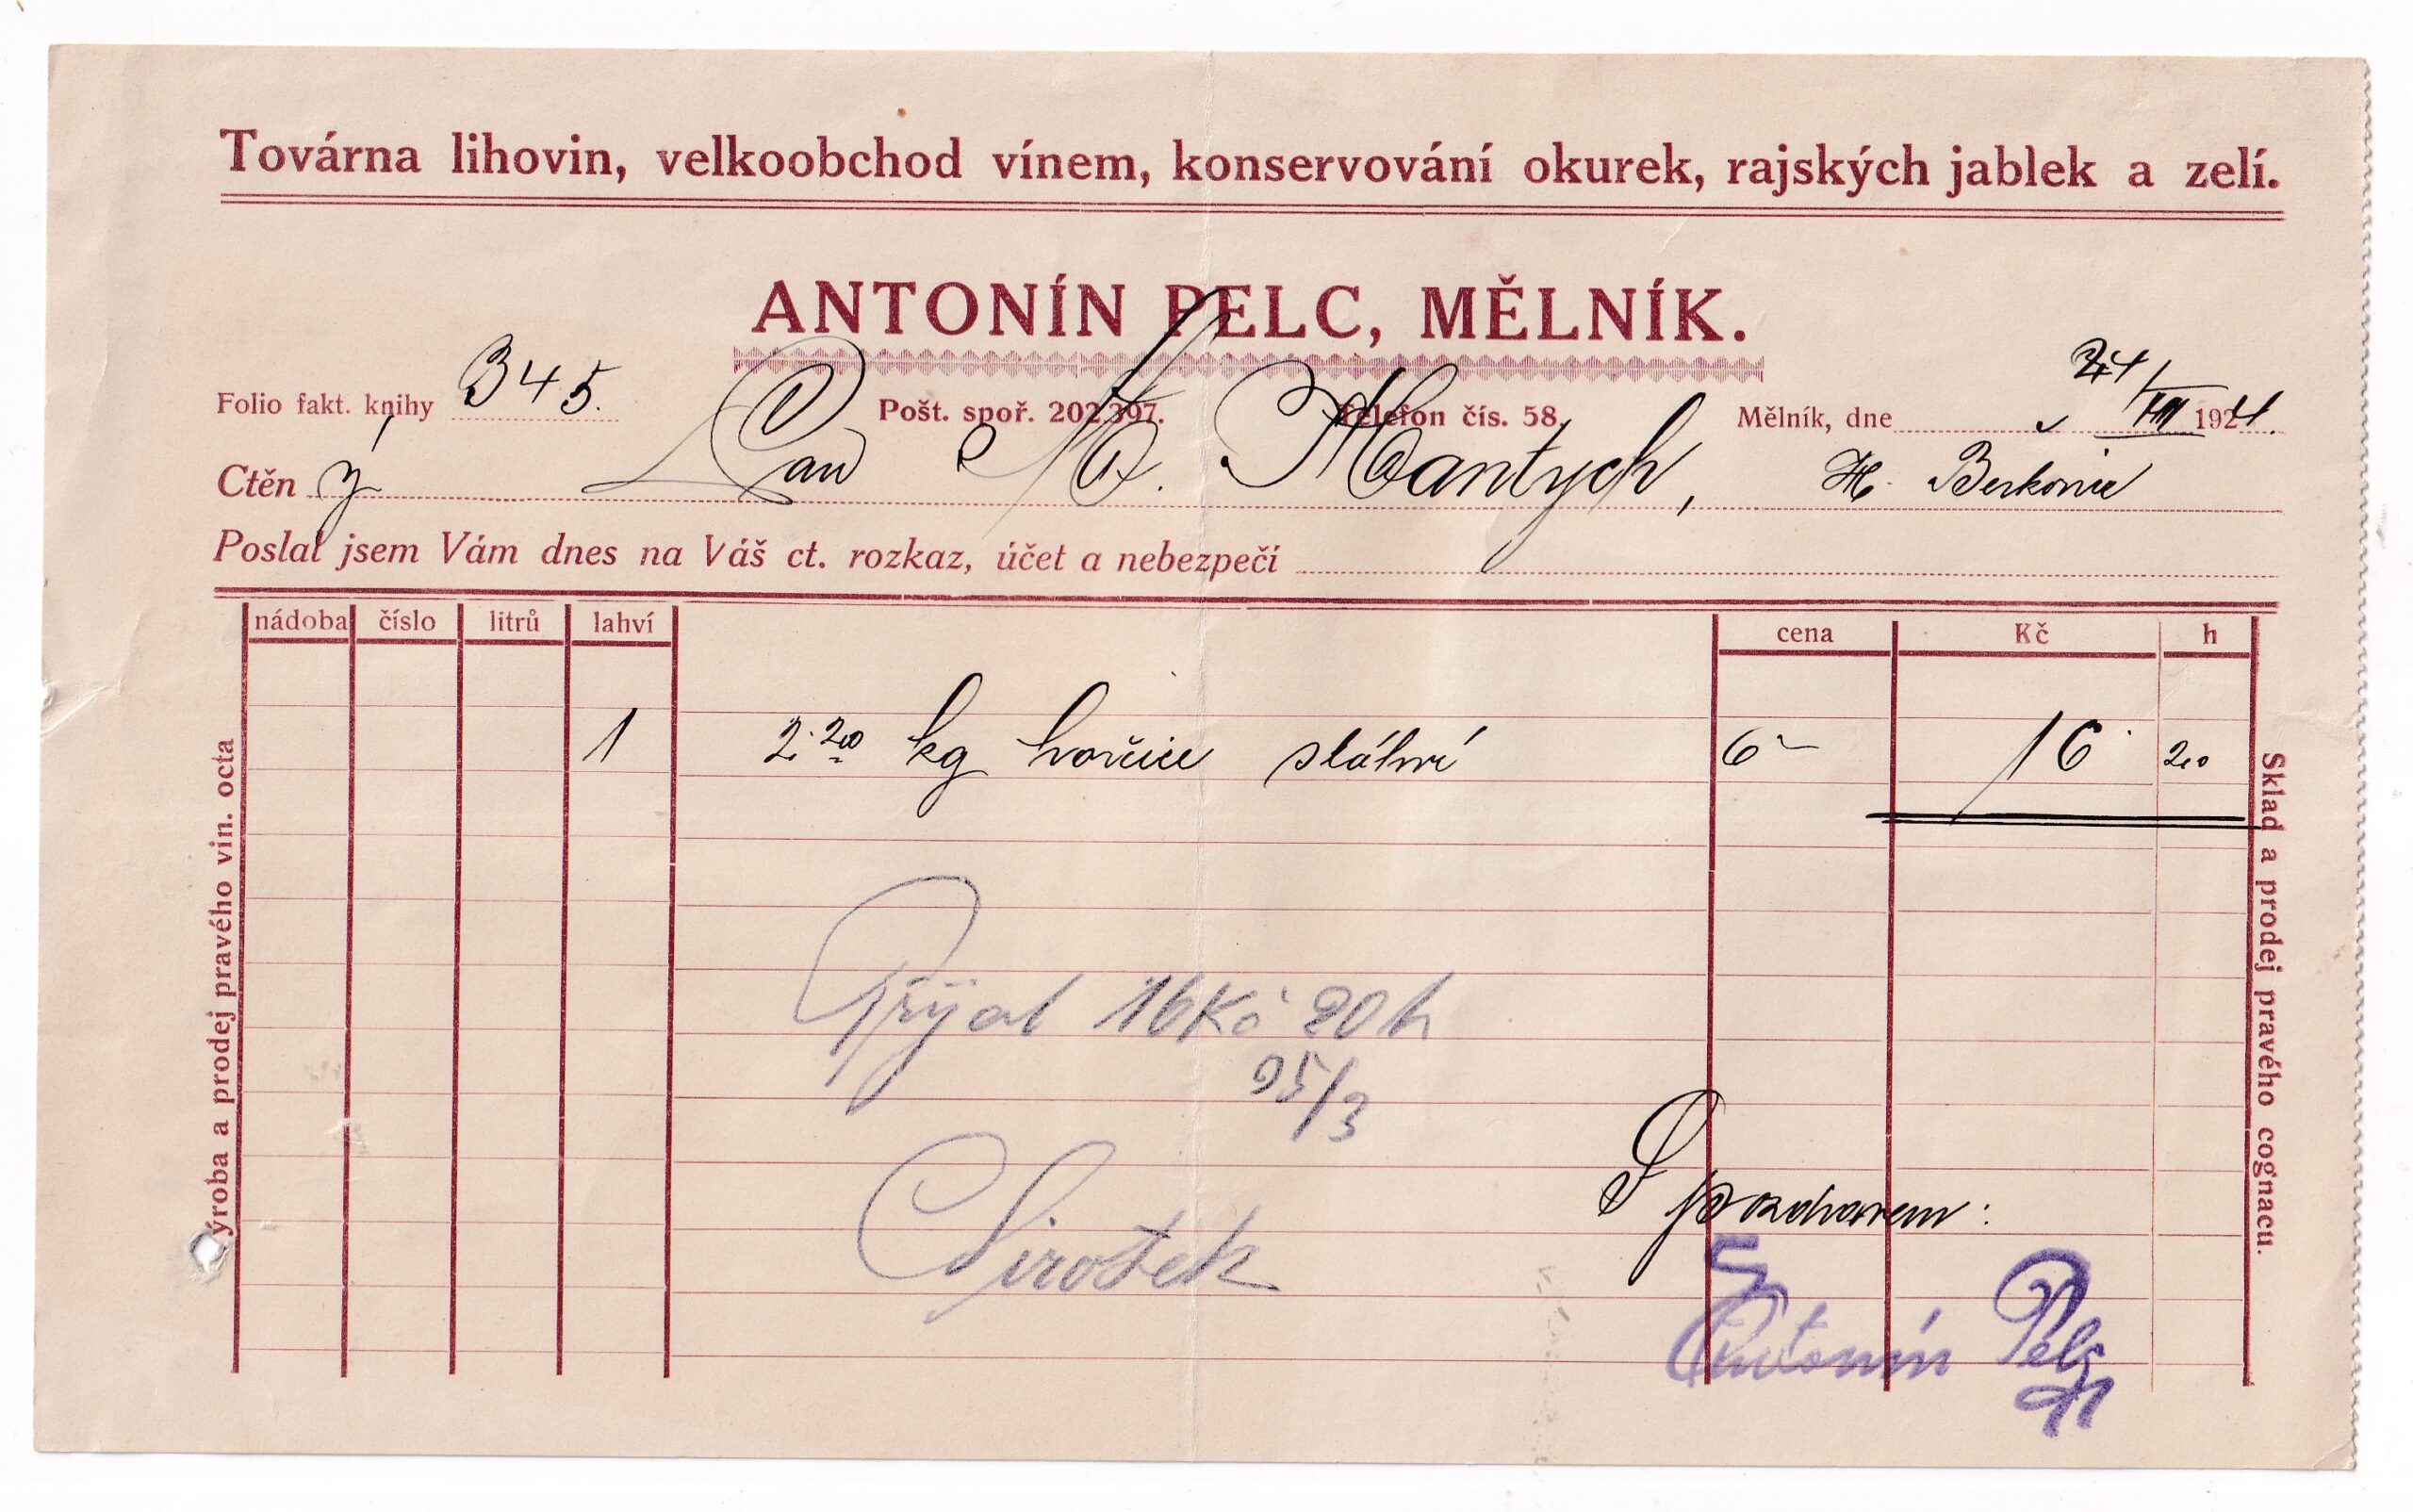 Továrna lihovin, velkoobchod vínem, konservování okurek, rajských jablek a zelí.
ANTONÍN PELC, MĚLNÍK.
Folio fakt. knihy 345. Pošt. spoř. 202.397. Telefon čís. 58. Mělník, dne 24/III 1924.
Ctěný Pan Mantych, H. Berkovice
Poslal jsem Vám dnes na Váš ct. rozkaz, účet a nebezpečí
nádoba číslo litrů lahví cena Kč h
1 2.20 kg hořčice 6 16 20
Přijal 16 Kč 20 h
25/3
Sirotek
S pozdravem:
Antonín Pelc
ýroba a prodej pravého vin. octa
Sklad a prodej pravého cognacu.